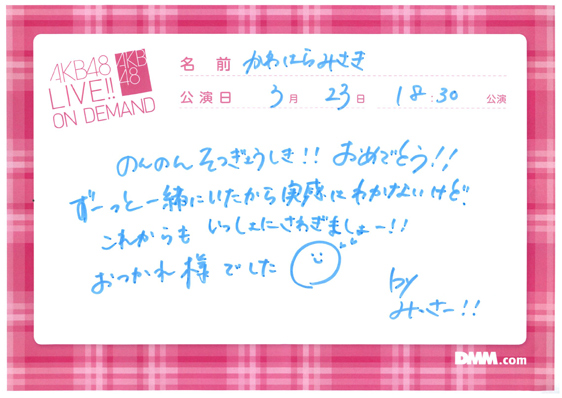 AKB48
LIVE!!
ON DEMAND
AKB
48
名前 かわはらみさき
公演日 3月 23日 18:30 公演
のんのん そつぎょうしき!! おめでとう!!
ずーっと一緒にいたから実感はわかないけど、
これからも いっしょにさわぎましょー!!
おつかれ様でした
by
みーさー!!
DMM.com